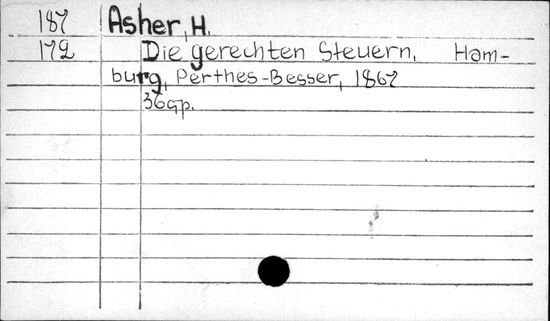 187 Asher, H.
172 Die gerechten Steuern. Ham-
burg, Perthes-Besser, 1867